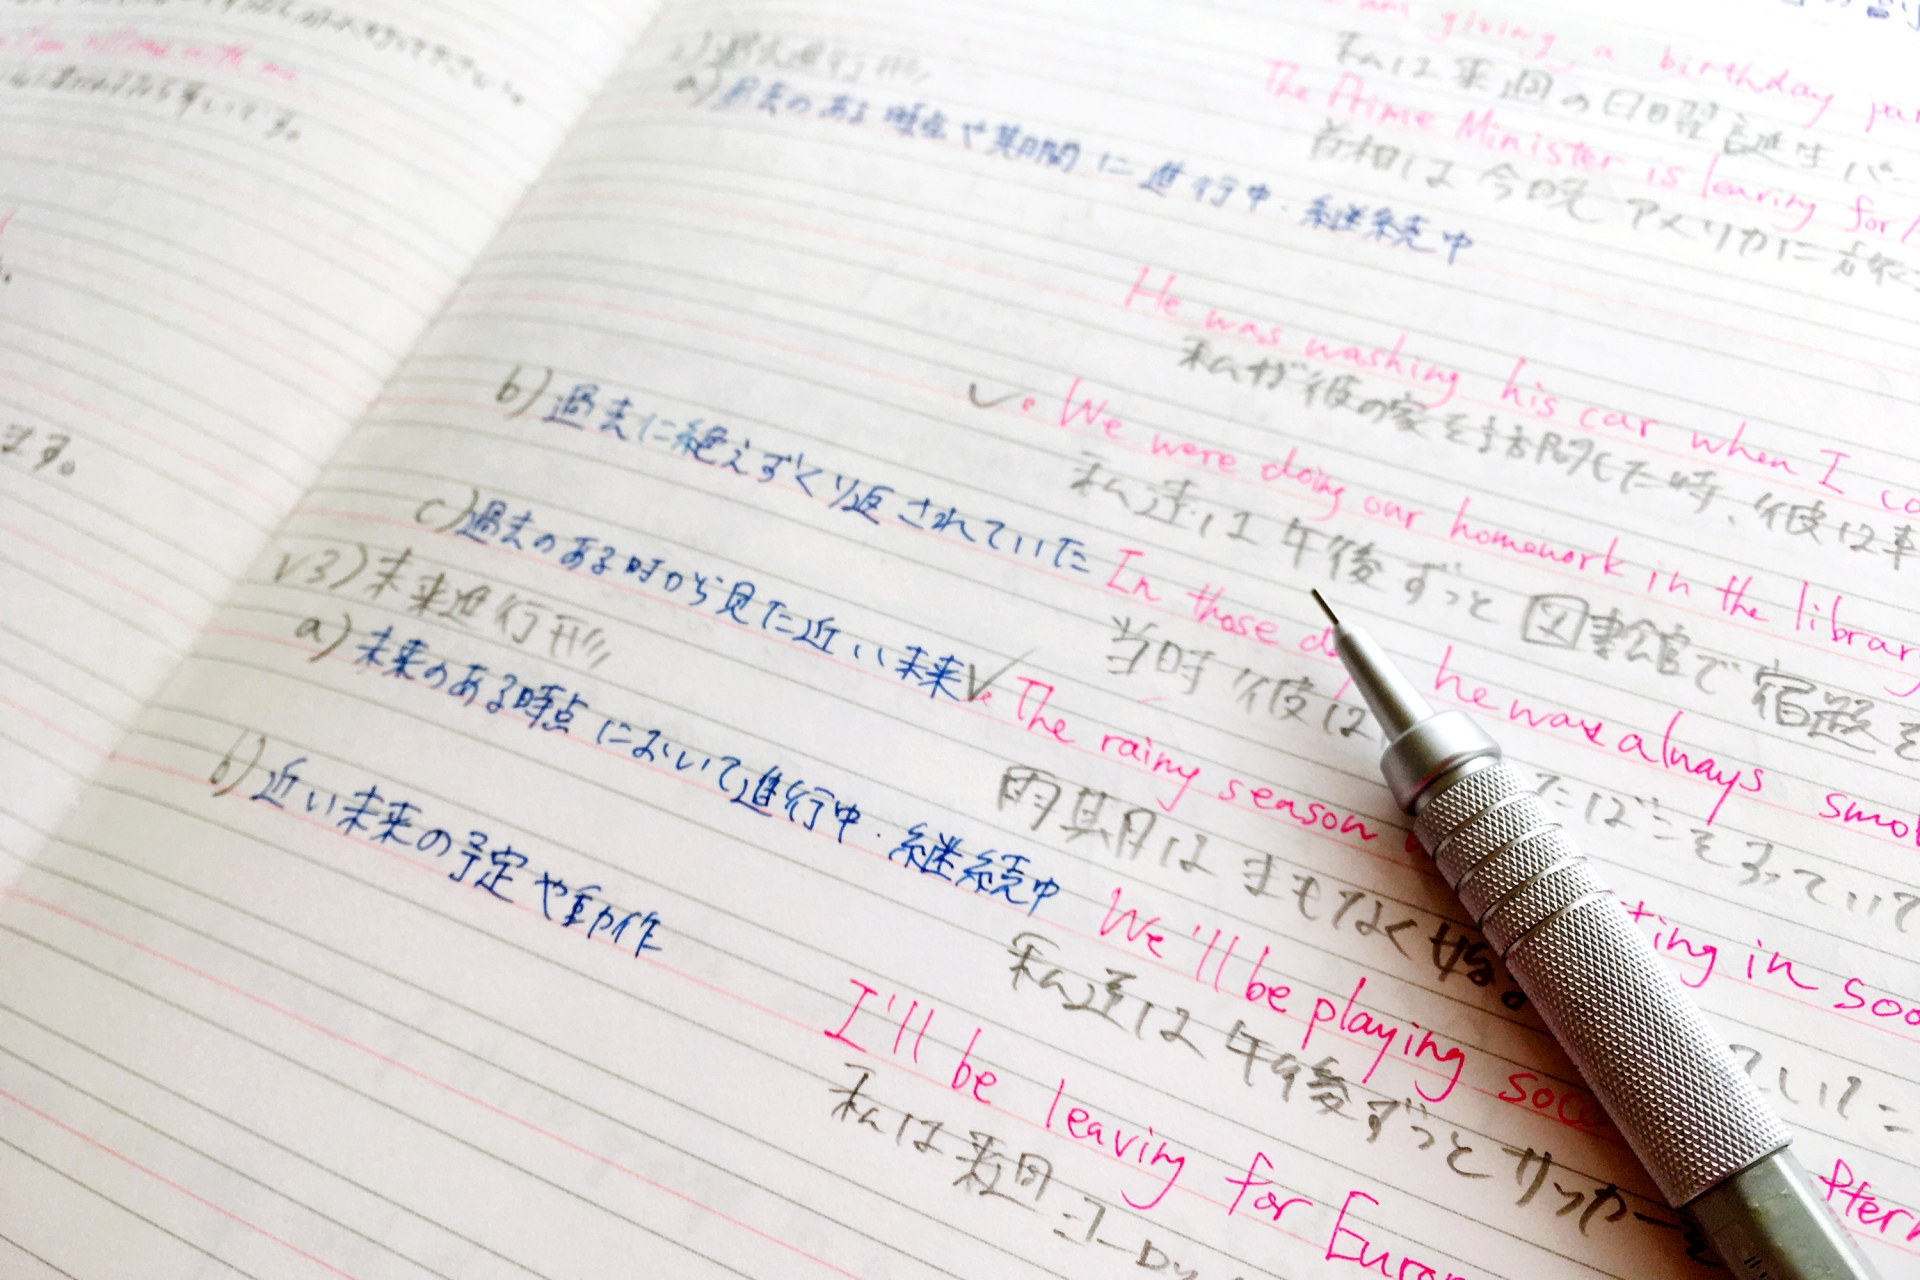 ます。
am giving a birthday par
私は来週の日曜誕生パー
The Prime Minister is leaving for A
首相は今晩アメリカに
2)過去進行形
a)過去のある時点や期間に進行中・継続中
He was washing his car when I ca
私が彼の家を訪問した時、彼は車
✓・We were doing our homework in the library
私達は午後ずっと図書館で宿題を
b)過去に絶えずくり返されていた In those he was always smo
当時彼は たばこをすっていて
c)過去のある時から見た近い未来 ✓・The rainy season ting in soo
雨期はまもなく始 ていた
✓3)未来進行形
a)未来のある時点において進行中・継続中 We'll be playing soc
私達は午後ずっとサッカー
b)近い未来の予定や動作
I'll be leaving for Europ
私は来週ヨーロッ